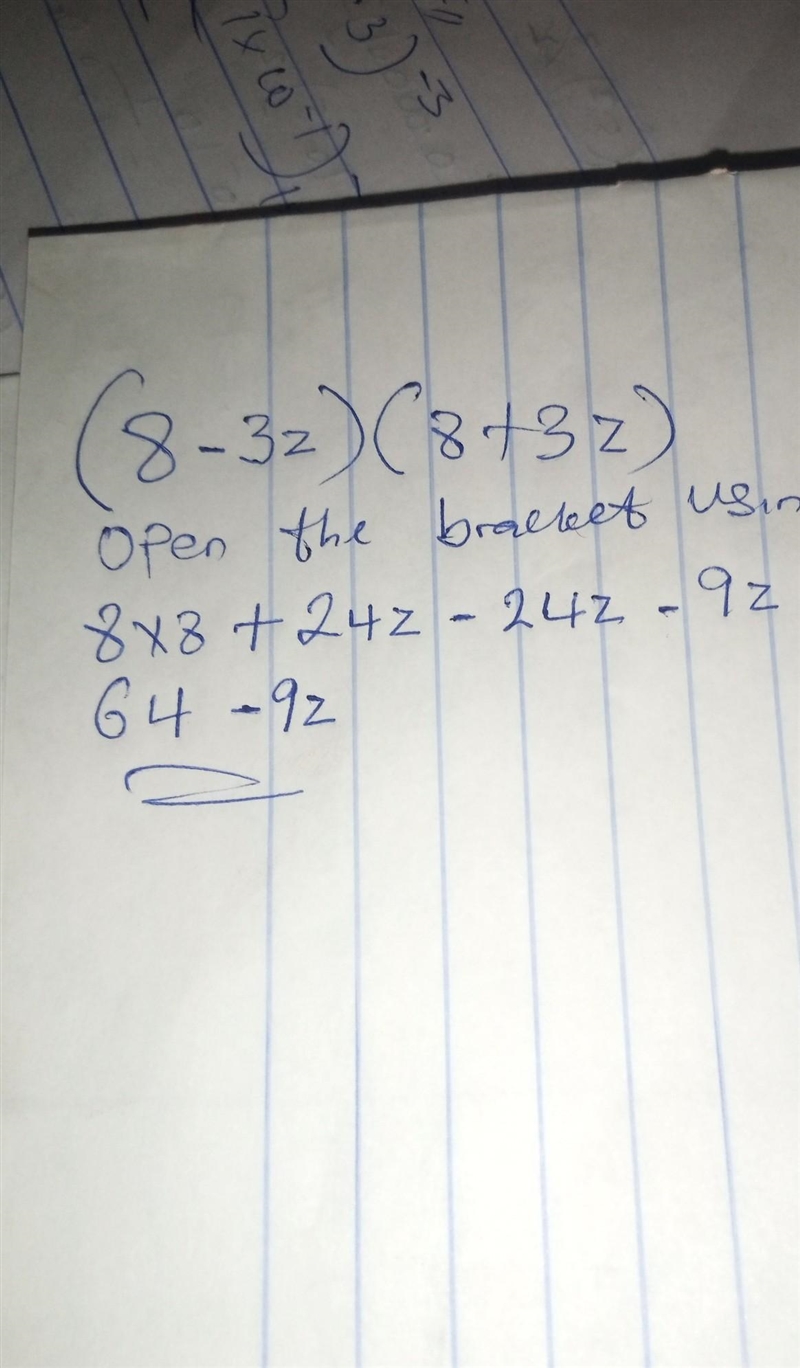 -3)⁻³
1x10⁻¹)
(8-3z)(8+3z)
Open the bracket usin
8x8 + 24z - 24z - 9z
64 - 9z